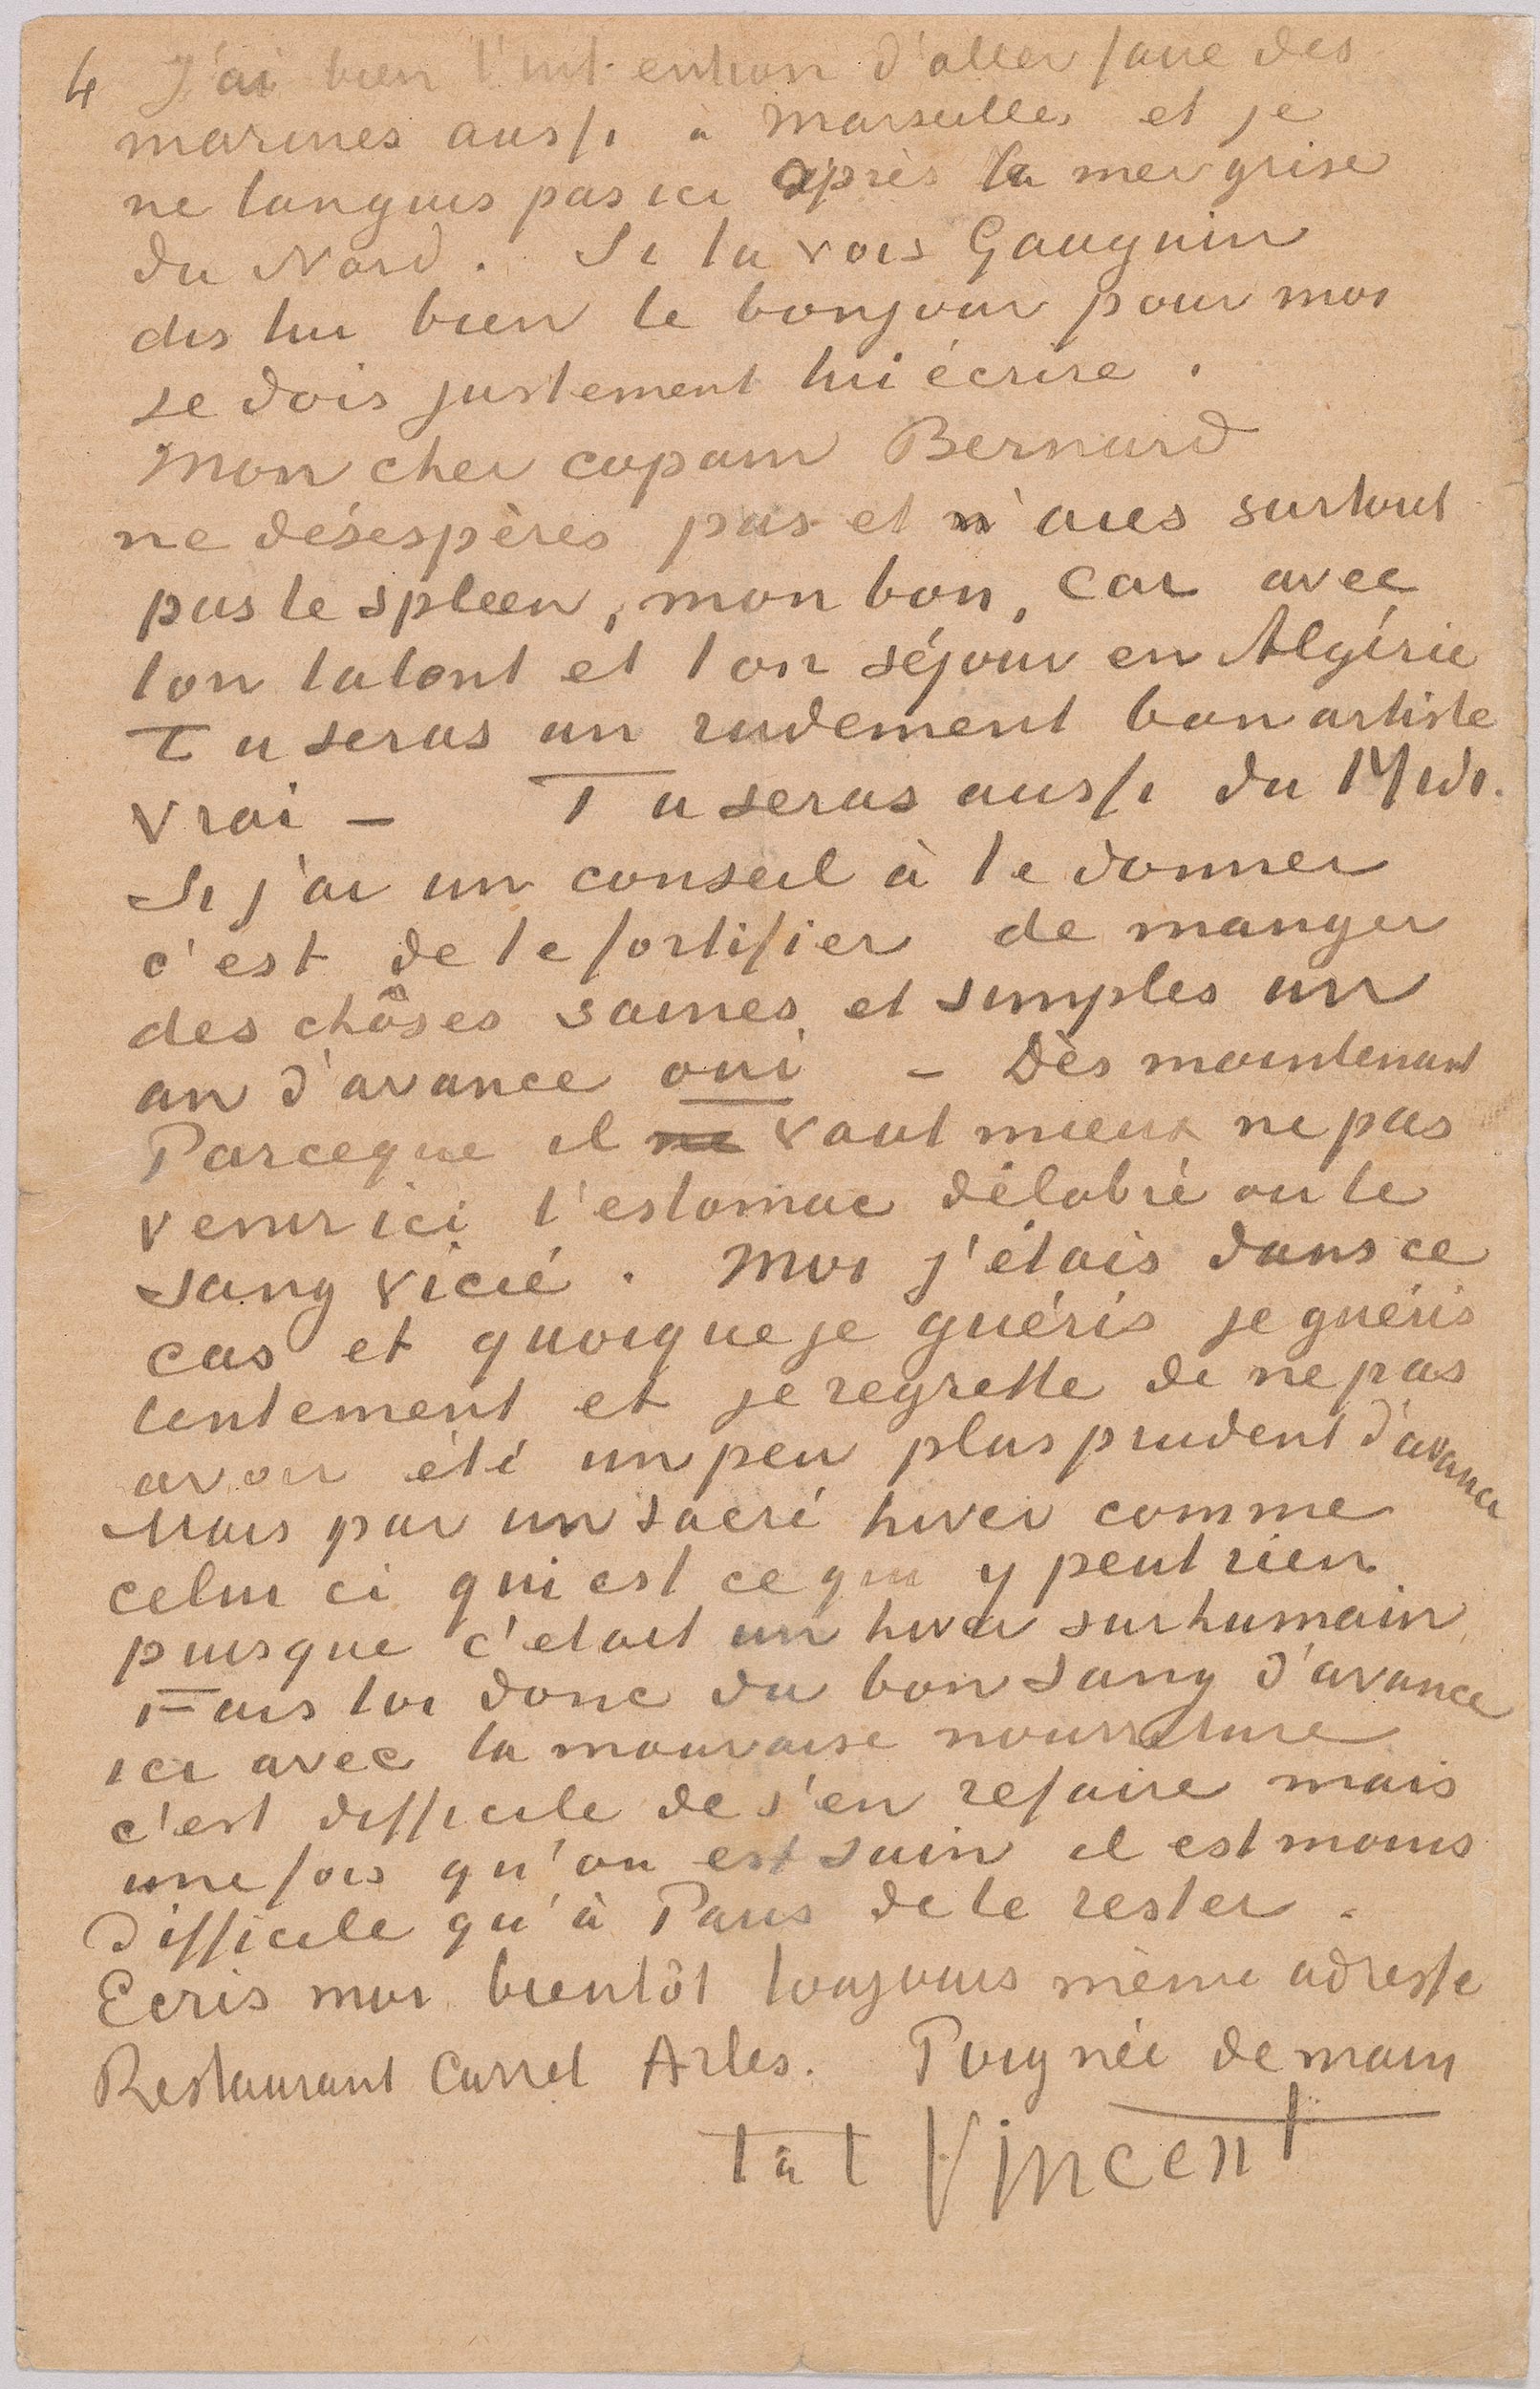 4 J'ai bien l'intention d'aller faire des
marines aussi à Marseille et je
ne languis pas ici après la mer grise
du Nord. Si tu vois Gauguin
dis lui bien le bonjour pour moi
je dois justement lui écrire.
Mon cher copain Bernard
ne désespères pas et n'aies surtout
pas le spleen, mon bon, car avec
ton talent et ton séjour en Algérie
Tu seras un rudement bon artiste
vrai – Tu seras aussi du Midi.
Si j'ai un conseil à te donner
c'est de te fortifier de manger
des chôses saines et simples un
an d'avance oui – Dès maintenant
Parceque il ne vaut mieux ne pas
venir ici l'estomac délabré ou le
sang vicié. Moi j'étais dans ce
cas et quoique je guéris je guéris
lentement et je regrette de ne pas
avoir été un peu plus prudent d'avance
Mais par un sacré hiver comme
celui ci qui est ce qui y peut rien
puisque c'etait un hiver surhumain,
Fais toi donc du bon sang d'avance
ici avec la mauvaise nourriture
c'est difficile de s'en refaire mais
une fois qu'on est sain il est moins
difficile qu'à Paris de le rester.
Ecris moi bientôt toujours même adresse
Restaurant Carrel Arles. Poignée de main
t à t Vincent